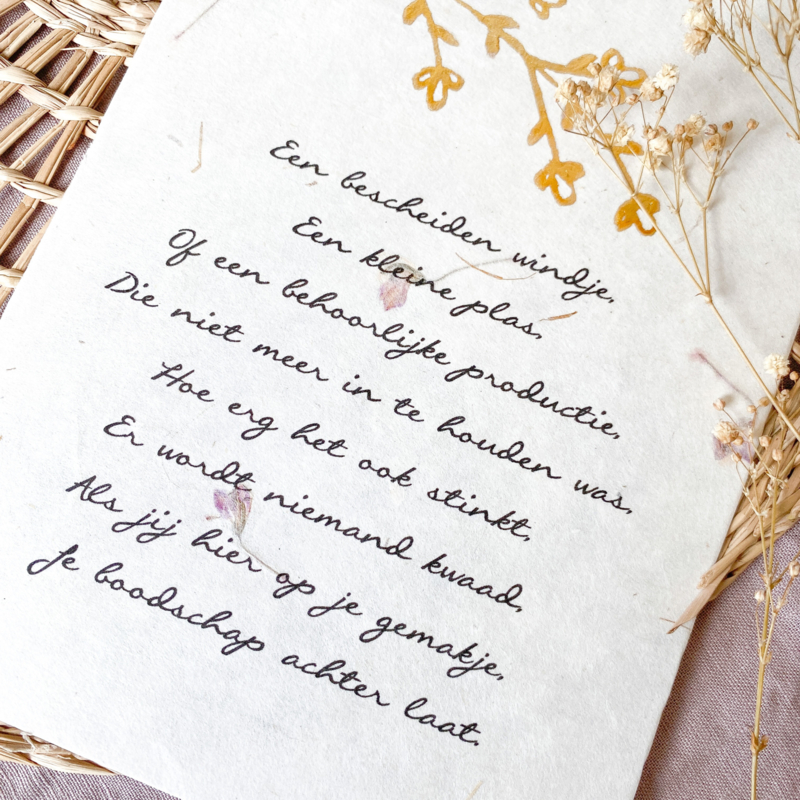 Een bescheiden windje,
Een kleine plas,
Of een behoorlijke productie,
Die niet meer in te houden was,
Hoe erg het ook stinkt,
Er wordt niemand kwaad,
Als jij hier op je gemakje,
Je boodschap achter laat.